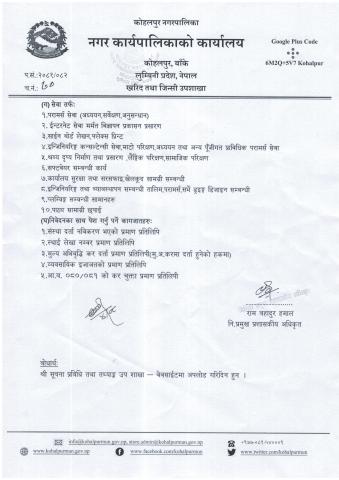 कोहलपुर नगरपालिका
नगर कार्यपालिकाको कार्यालय
कोहलपुर, बाँके
लुम्बिनी प्रदेश, नेपाल
खरिद तथा जिन्सी उपशाखा
Google Plus Code
6M2Q+5V7 Kohalpur
प.सं.:२०८१/०८२
च.नं.: ६०
(ग) सेवा तर्फः
१.परामर्स सेवा (अध्ययन,सर्वेक्षण,अनुसन्धान)
२.ईन्टरनेट सेवा मर्मत बिज्ञापन प्रकासन प्रसारण
३.साईन बोर्ड लेखन,फ्लेक्स प्रिन्ट
४.इन्जिनियरिङ्ग कन्सल्टेन्सी सेवा,माटो परिक्षण,अध्ययन तथा अन्य पूँजीगत प्राविधिक परामर्स सेवा
५.श्रव्य दृष्य निर्माण तथा प्रसारण ,लैङ्गिक परिक्षण,सामाजिक परिक्षण
६.सफ्टवेयर सम्बन्धी कार्य
७.कार्यालय सुरक्षा तथा सरसफाइ,खेलकुद सामग्री सम्बन्धी
८.इन्जिनियरिङ्ग तथा व्यावस्थापन सम्बन्धी तालिम,परामर्स,सर्भे ड्रइङ्ग डिजाइन सम्बन्धी
९.प्लम्बिङ्ग सम्बन्धी सामानहरु
१०.पाठ्य सामाग्री छपाई
(घ)निवेदनका साथ पेश गर्नु पर्ने कागजातहरुः
१.संस्था दर्ता नविकरण भएको प्रमाण प्रतिलिपि
२.स्थाई लेखा नम्बर प्रमाण प्रतिलिपि
३.मुल्य अभिवृद्धि कर दर्ता प्रमाण प्रतिलिपी(मु.अ.करमा दर्ता हुनेको हकमा)
४.व्यवसायिक इजाजतको प्रमाण प्रतिलिपि
५.आ.व. ०८०/०८१ को कर चुक्ता प्रमाण प्रतिलिपी
राम बहादुर हमाल
नि.प्रमुख प्रशासकीय अधिकृत
बोधार्थः
श्री सूचना प्रविधि तथा तथ्याङ्क उप शाखा – वेबसाईटमा अपलोड गरिदिनु हुन ।
info@kohalpurmun.gov.np, store.admin@kohalpurmun.gov.np
www.kohalpurmun.gov.np
www.facebook.com/kohalpurmun
www.twitter.com/kohalpurmun